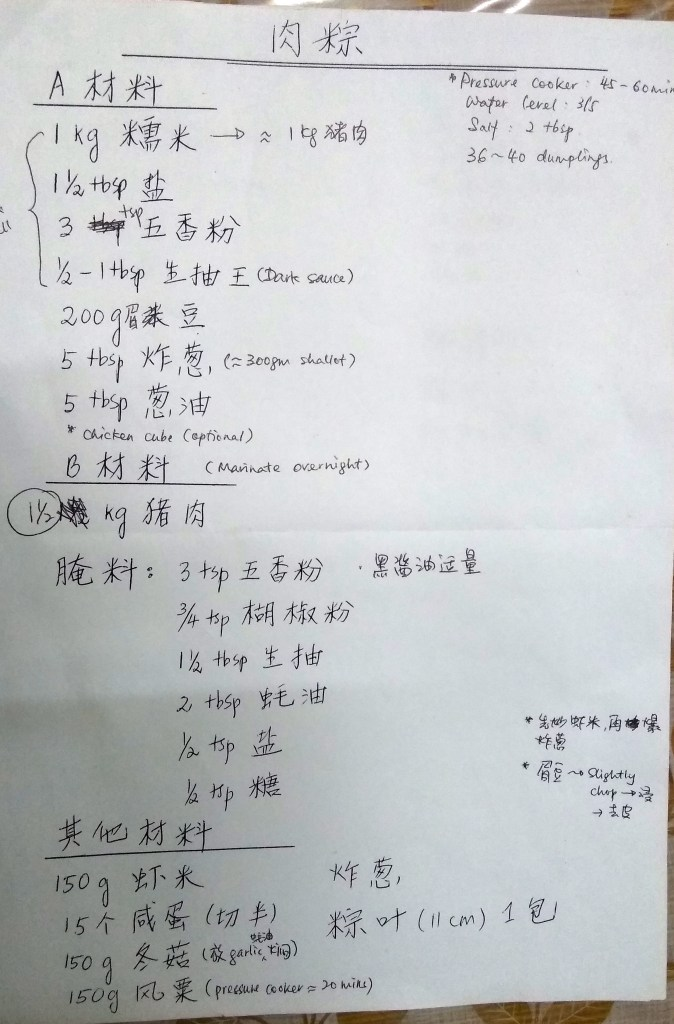 肉粽
* Pressure cooker : 45 - 60 min
Water level : 3/5
Salt : 2 tbsp
36 ~ 40 dumplings.
A 材料
1 kg 糯米 → ≈ 1 kg 猪肉
1 1/2 tbsp 盐
3 tsp 五香粉
1/2 - 1 tbsp 生抽王 (Dark sauce)
200g 眉豆
5 tbsp 炸葱, (≈ 300gm shallot)
5 tbsp 葱油
* Chicken cube (optional)
B 材料 (Marinate overnight)
1 1/2 kg 猪肉
腌料: 3 tsp 五香粉 . 黑酱油适量
3/4 tsp 胡椒粉
1 1/2 tbsp 生抽
2 tbsp 蚝油
1/2 tsp 盐
1/2 tsp 糖
* 先炒虾米, 再爆
炸葱
* 眉豆 → slightly
chop → 浸
→ 去皮
其他材料
150g 虾米 炸葱,
15个 咸蛋 (切半) 粽叶 (11 cm) 1包
150g 冬菇 (放 garlic, 蚝油 焖)
150g 风栗 (pressure cooker ≈ 20 mins)